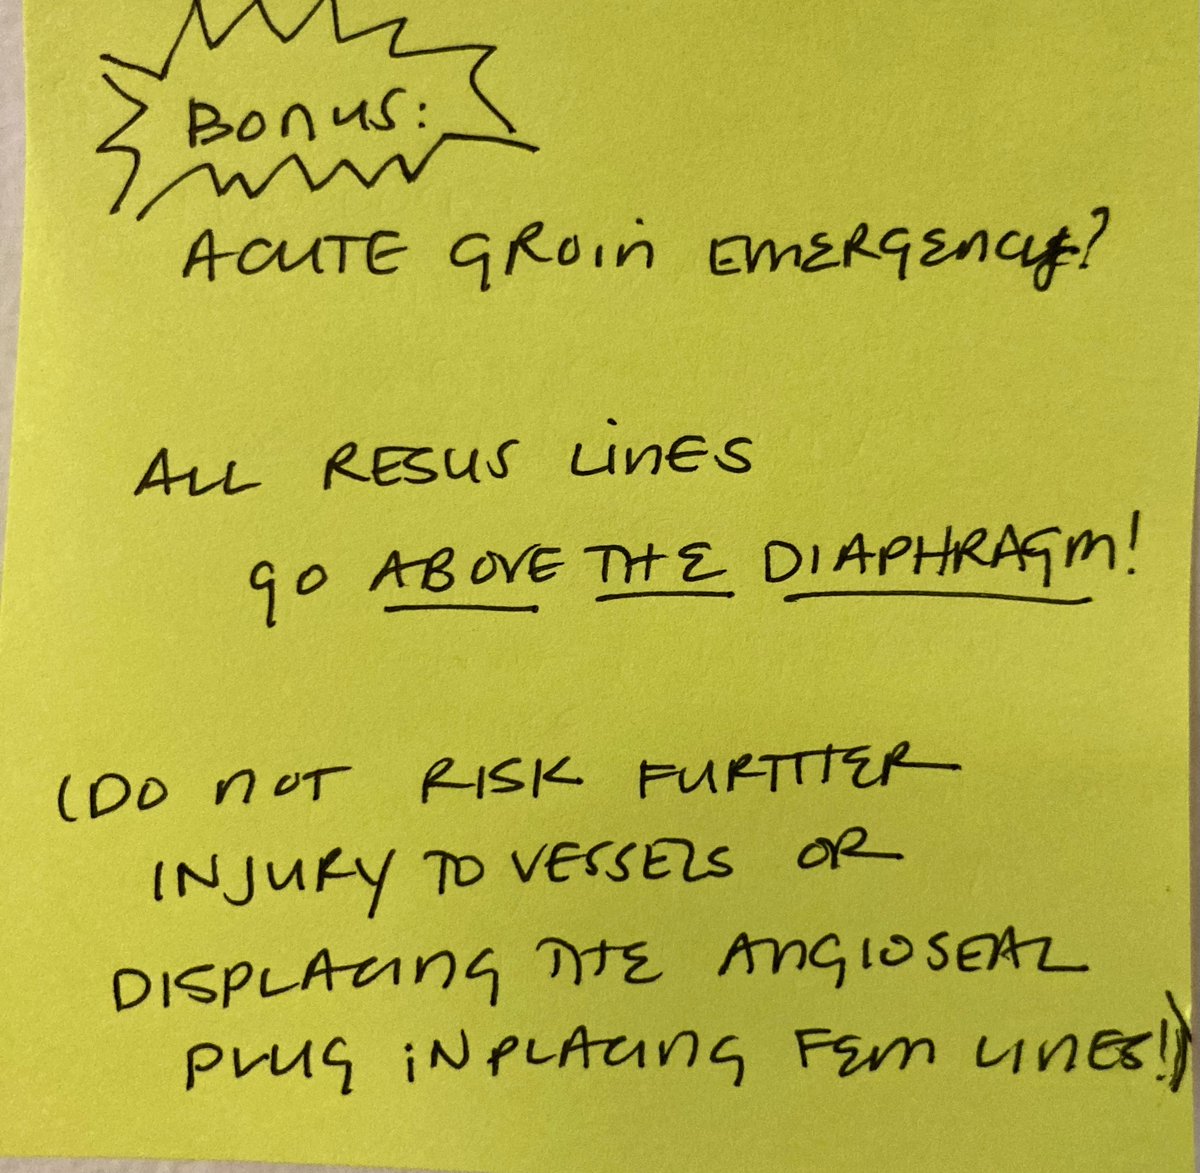 Bonus:
ACUTE GROIN EMERGENCY?
ALL RESUS LINES
GO ABOVE THE DIAPHRAGM!
(DO NOT RISK FURTHER
INJURY TO VESSELS OR
DISPLACING THE ANGIOSEAL
PLUG IN PLACING FEM LINES!)